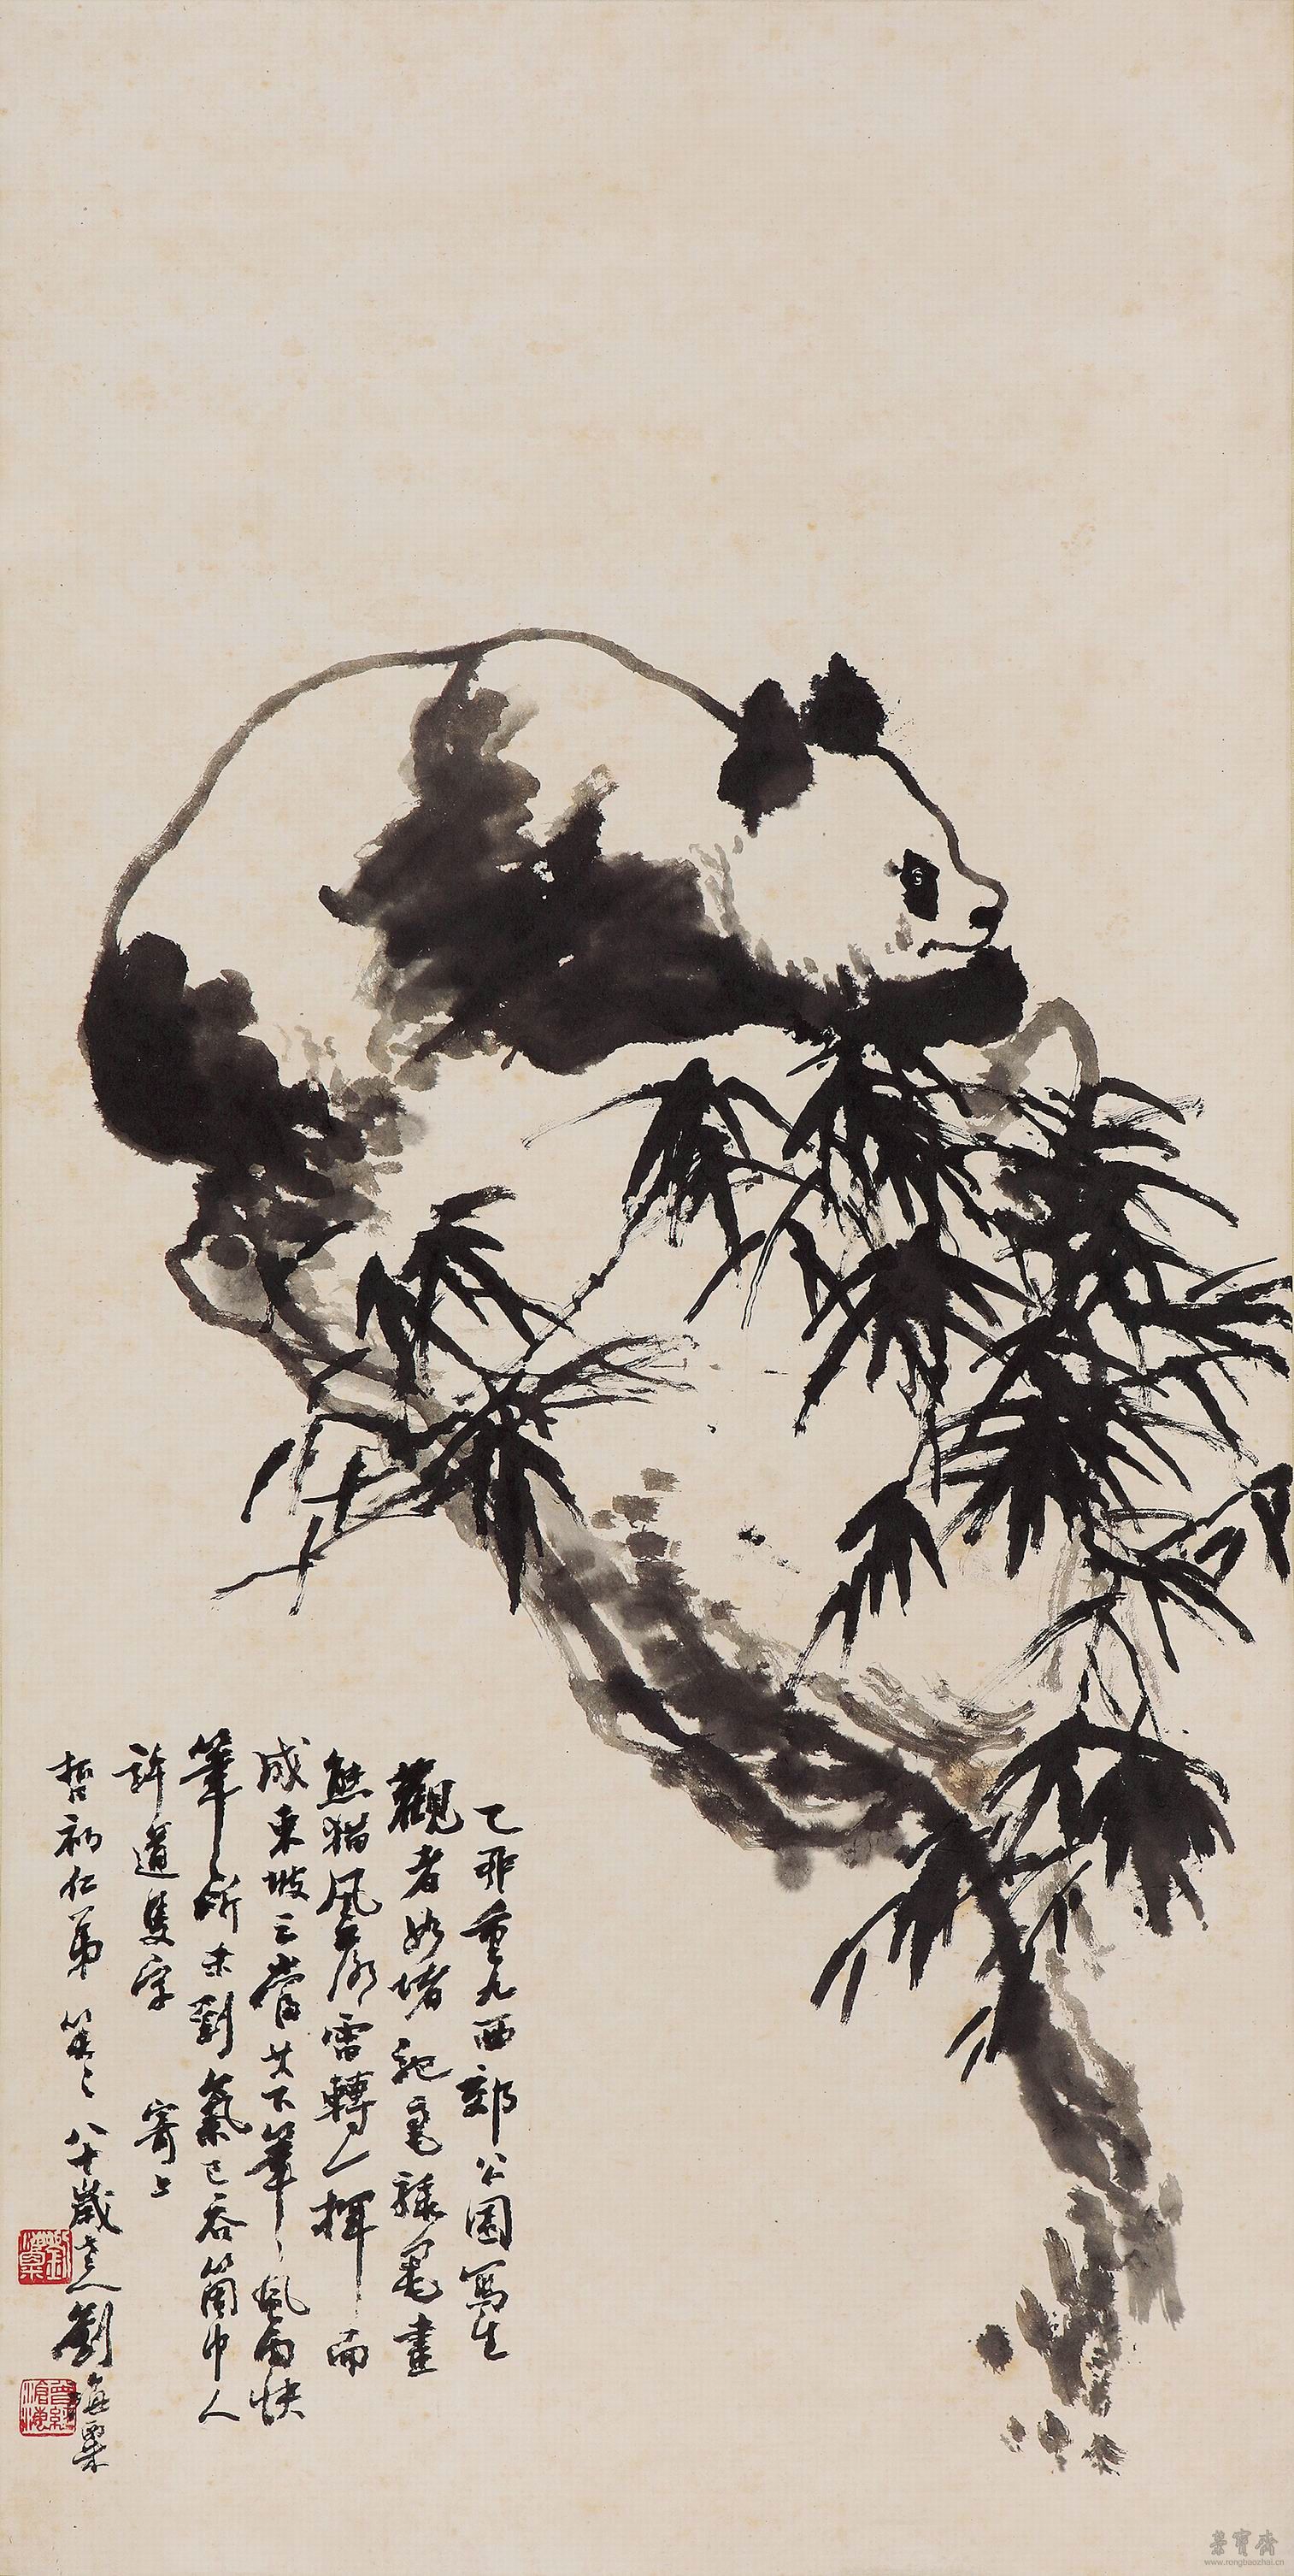 乙卯重九西郊公園寫生
觀者如堵 毫 墨畫
熊猫風 雷轉一揮而
成東坡云當其下筆風雨快
筆所未到氣已吞箇中人
許道隻字 寄上
哲初仁弟 笑之 八十歲老人劉海粟
劉海粟
曾經滄海
榮寶齋
www.rongbaozhai.cn